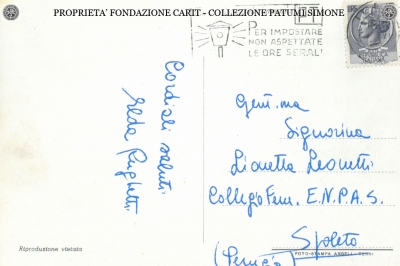 PROPRIETA' FONDAZIONE CARIT - COLLEZIONE PATUMI SIMONE
PT
PER IMPOSTARE
NON ASPETTATE
LE ORE SERALI
Cordiali saluti
Elda Rughetti
Gent.ma
Signorina
Lionetta Leonetti
Collegio Fem. E.N.P.A.S.
Spoleto
(Perugia)
Riproduzione vietata
FOTO-STAMPA ANGELI - TERNI